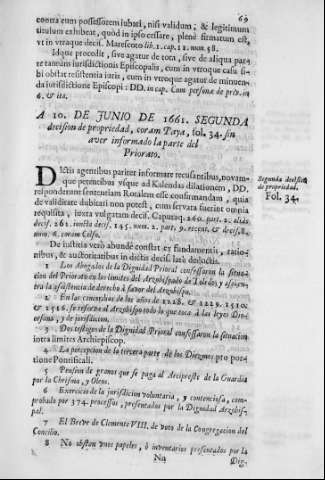 69
contra eum possessorem iubari, nisi validum, & legitimum
titulum exhibeat, quòd in ipso cessare, plenè firmatum est,
vt in vtroque decis. Marescoto lib. 1. cap. 11. num. 58.
Idque procedit, sive agatur de tota, sive de aliqua par-
te tantùm iurisdictionis Episcopalis, cum in vtroque casu si-
bi obstat resistentia iuris, cum in vtroque agatur de minuen-
da iurisdictione Episcopi: DD. in cap. Cum personæ de priv. in
6. & ita.
A 10. DE JUNIO DE 1661. SEGUNDA
decision de propriedad, coram Taya, fol. 34. sin
aver informado la parte del
Priorato.
Segunda decision
de propriedad.
Fol. 34.
Dictis agentibus pariter informare recusantibus, novam-
que petentibus vsque ad Kalendas dilationem, DD.
responderunt sententiam Rotalem esse confirmandam, quia
de validitate dubitari non potest, cum servata fuerint omnia
requisita, iuxta vulgatam decis. Capuraq. 260. part. 2.
decis. 261. iuncto decis. 145. num. 2. part. 9. recent. & decis. 84.
num. 6. coram Celso.
De iustitia verò abundè constat ex fundamentis, ratio-
nibus, & auctoritatibus in dictis decis. latè deductis.
1 Los Abogados de la Dignidad Prioral confessaron la situa-
cion del Priorato en los limites del Arzobispado de Toledo, y
la assistencia de derecho à favor del Arzobispo.
2 En las concordias de los años de 1228. & 1229. 1510.
& 1516. se reserva al Arzobispo todo lo que toca à las leyes Dio-
cesana, y de jurisdiccion.
3 Dos testigos de la Dignidad Prioral confessaron la situacion
intra limites Archiepiscop.
4 La percepcion de la tercera parte de los Diezmos, pro por-
tione Pontificali.
5 Pension de granos que se paga al Arcipreste de la Guardia
por la Chrisma, y Oleos.
6 Exercicio de la jurisdiccion voluntaria, y contenciosa, com-
probado por 374. processos, presentados por la Dignidad Arzobis-
pal.
7 El Breve de Clemente VIII. de voto de la Congregacion del
Concilio.
8 No obstan unos papeles, ò inventarios presentados por la
Nn
Dig-